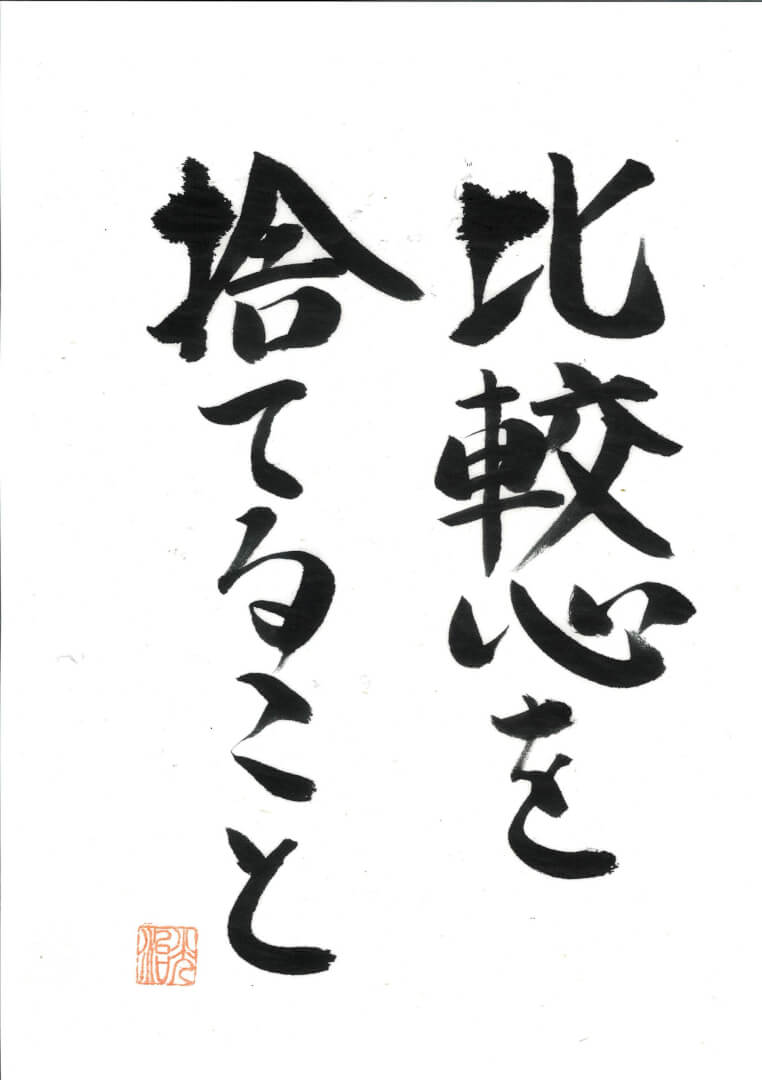 比較心を
捨てること